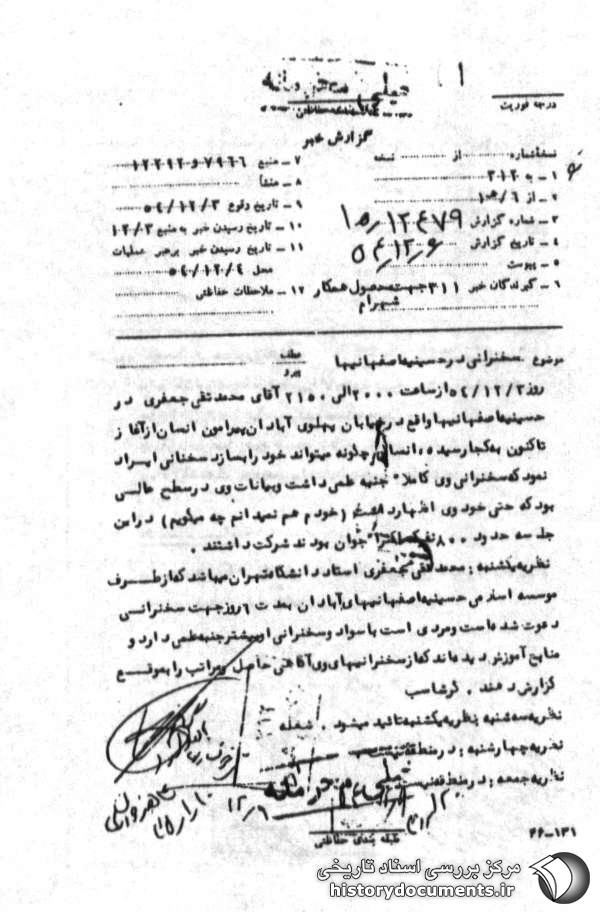 خیلی محرمانه
طبقه‌بندی حفاظتی
درجه فوریت
گزارش خبر
نسخه‌شماره .......... از .......... نسخه
۱ ـ به ۳۱۲
۲ ـ از ۶/ه۱
۳ ـ شماره گزارش ۱۵٫۱۲۴۷۹
۴ ـ تاریخ گزارش ۵۴٫۱۲٫۶
۵ ـ پیوست
۶ ـ گیرندگان خبر ۳۱۱ جهت محصول همکار
شهرام
۷ ـ منبع ۷۹۶۶ و ۱۲۲۹۲
۸ ـ منشأ
۹ ـ تاریخ وقوع ۵۴/۱۲/۳
۱۰ ـ تاریخ رسیدن خبر به منبع ۱۲/۳
۱۱ ـ تاریخ رسیدن خبر برهبر عملیات
محل ۵۴۰/۱۲/۴
۱۲ ـ ملاحظات حفاظتی
موضوع سخنرانی در حسینیه اصفهانیها
عطف
پیرو
روز ۵۴/۱۲/۳ از ساعت ۲۰۰۰ الی ۲۱۵۰ آقای محمد تقی جعفری در
حسینیه اصفهانیها واقع در خیابان پهلوی آبادان پیرامون انسان از آغاز
تاکنون به کجا رسیده، انسان چگونه میتواند خود را بسازد سخنانی ایراد
نمود که سخنرانی وی کاملا" جنبه علمی داشت و بیانات وی در سطح عالی
بود که حتی خود وی اظهار داشت (خودم هم نمیدانم چه میگویم) در این
جلسه حدود ۸۰۰ نفر که اکثرا" جوان بودند شرکت داشتند .
نظریه یکشنبه : محمد تقی جعفری استاد دانشگاه تهران میباشد که از طرف
موسسه اسلامی حسینیه اصفهانیهای آبادان بمدت ۶ روز جهت سخنرانی
دعوت شده است و مردی است با سواد و سخنرانی او بیشتر جنبه علمی دارد و
منابع آموزش دیده‌اند که از سخنرانیهای وی آگاهی حاصل و مراتب را بموقع
گزارش دهند . گرشاسب
نظریه سه‌شنبه نظریه یکشنبه تائید میشود . شعله
نظریه چهارشنبه : در منطقه نیست
نظریه جمعه : در منطقه نیست
خیلی محرمانه
طبقه بندی حفاظتی
۲۶-۱۳۱
مرکز بررسی اسناد تاریخی
historydocuments.ir